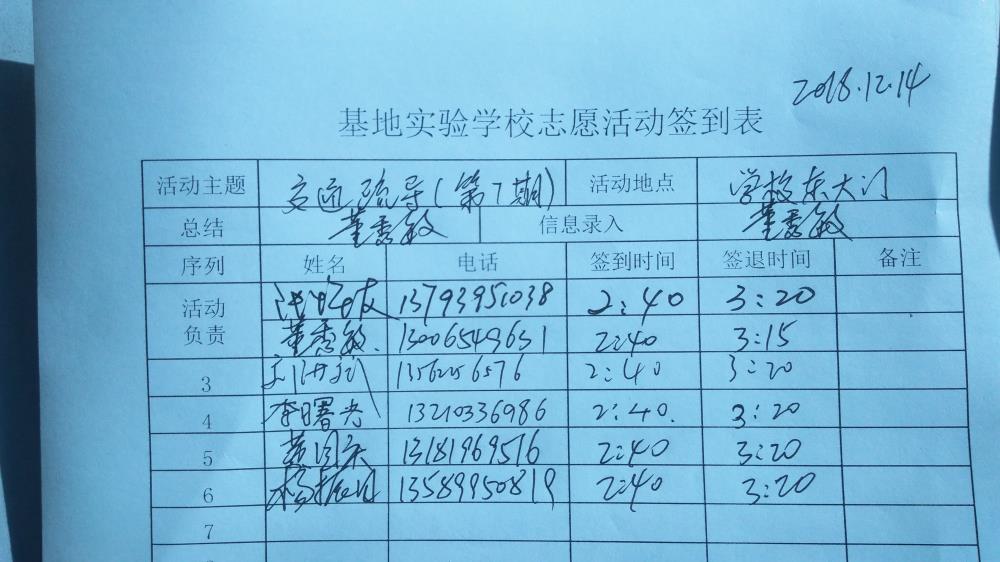 2018.12.14
基地实验学校志愿活动签到表
活动主题 交通疏导(第7期) 活动地点 学校东大门
总结 董秀敏 信息录入 董秀敏
序列 姓名 电话 签到时间 签退时间 备注
活动负责 13793951038 2:40 3:20
董秀敏 13006549631 2:40 3:15
3 2:40 3:20
4 李曙光 13210336986 2:40 3:20
5 13181969516 2:40 3:20
6 13589950819 2:40 3:20
7